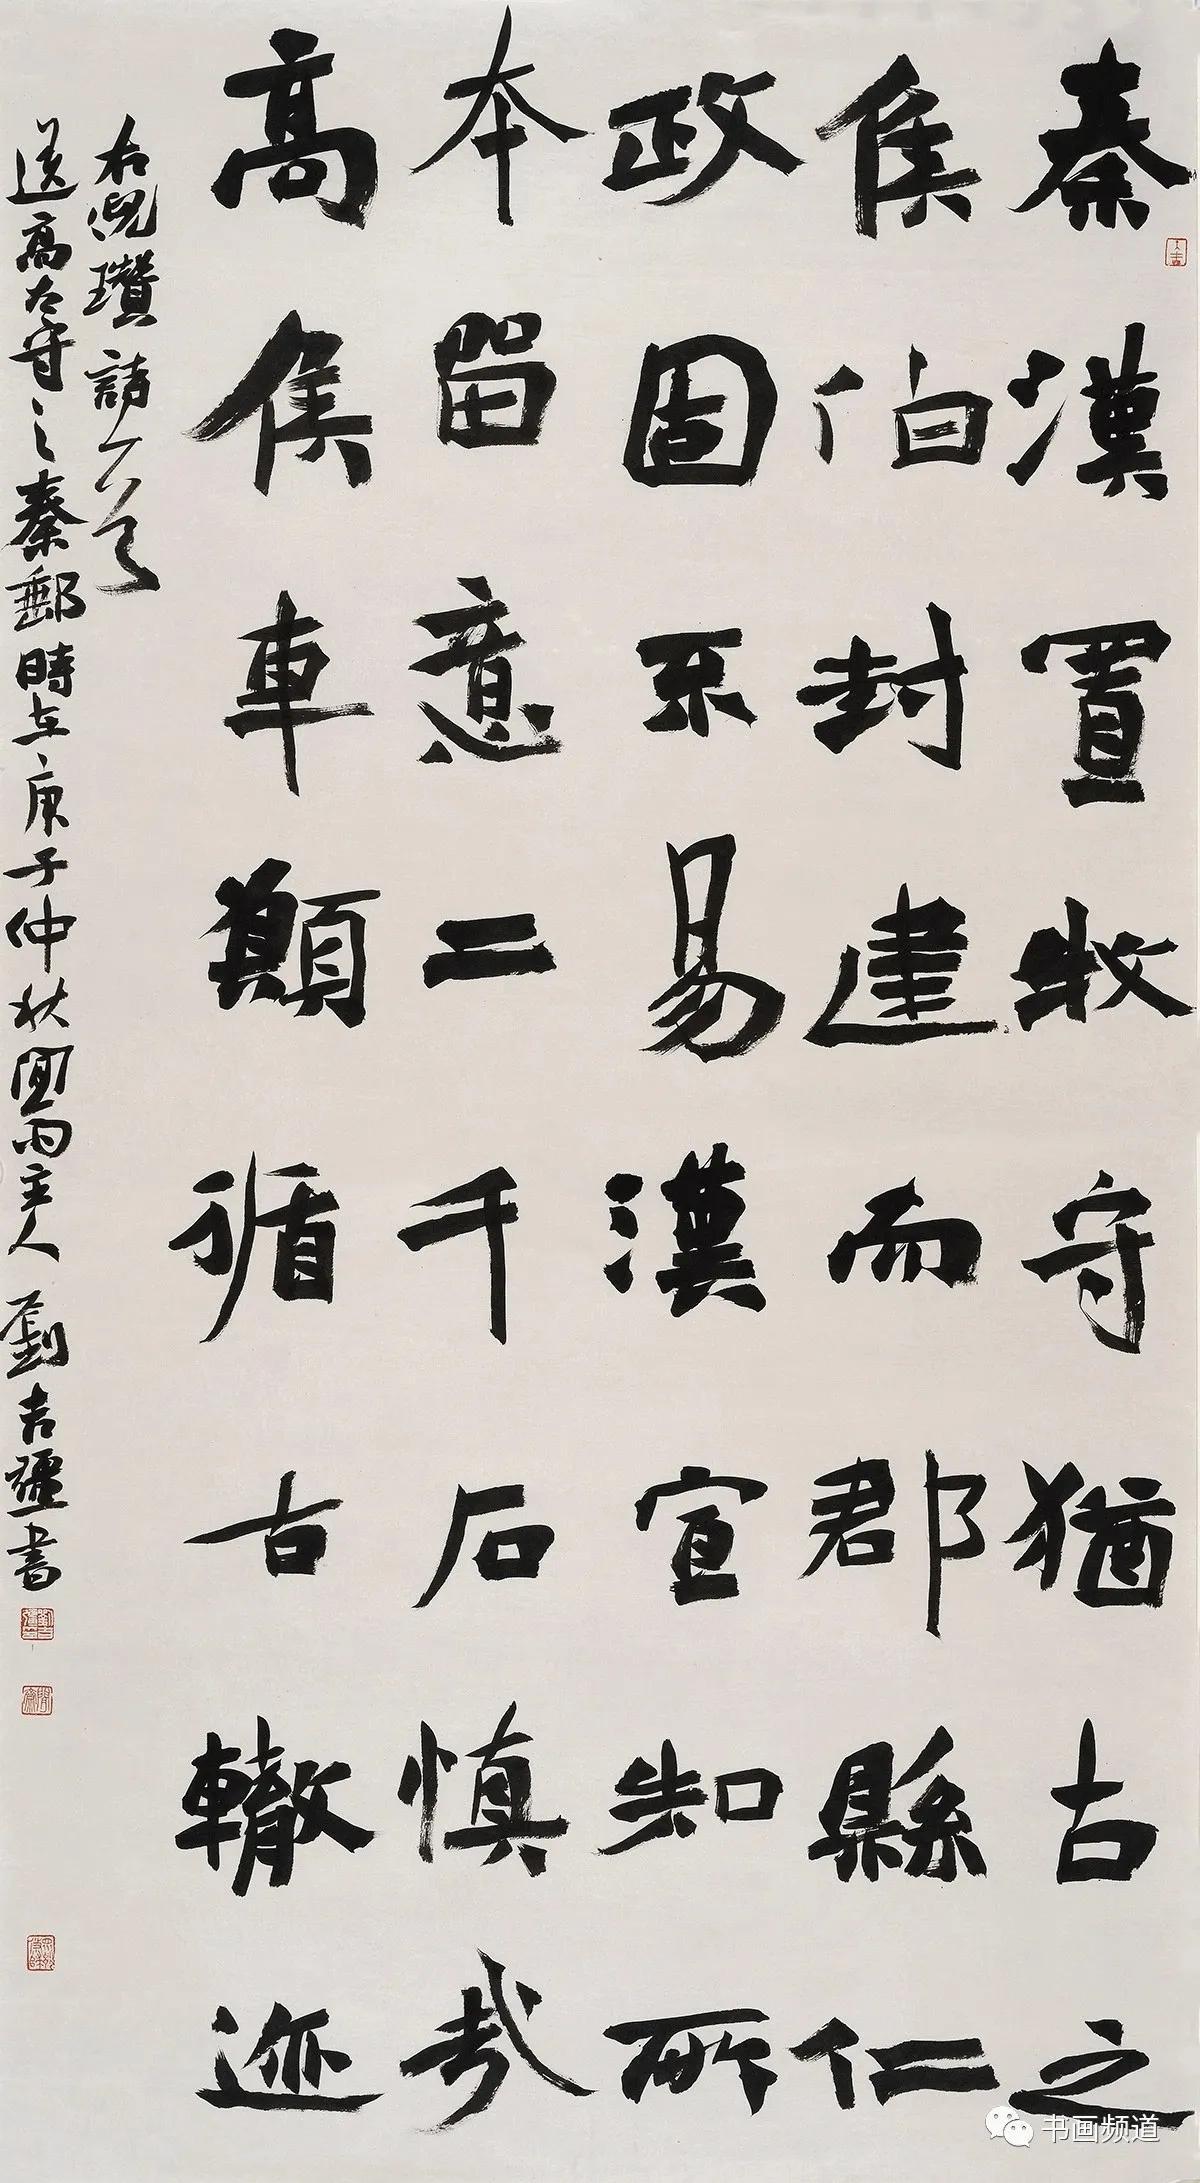 秦漢置牧守猶古之
侯伯封建而郡縣仁
政固不易漢宣知所
本留意二千石慎哉
高侯車願循古轍迹
右倪瓚詩一首
送高太守之秦郵時在庚子仲秋聞雨主人劉吉疆書
书画频道